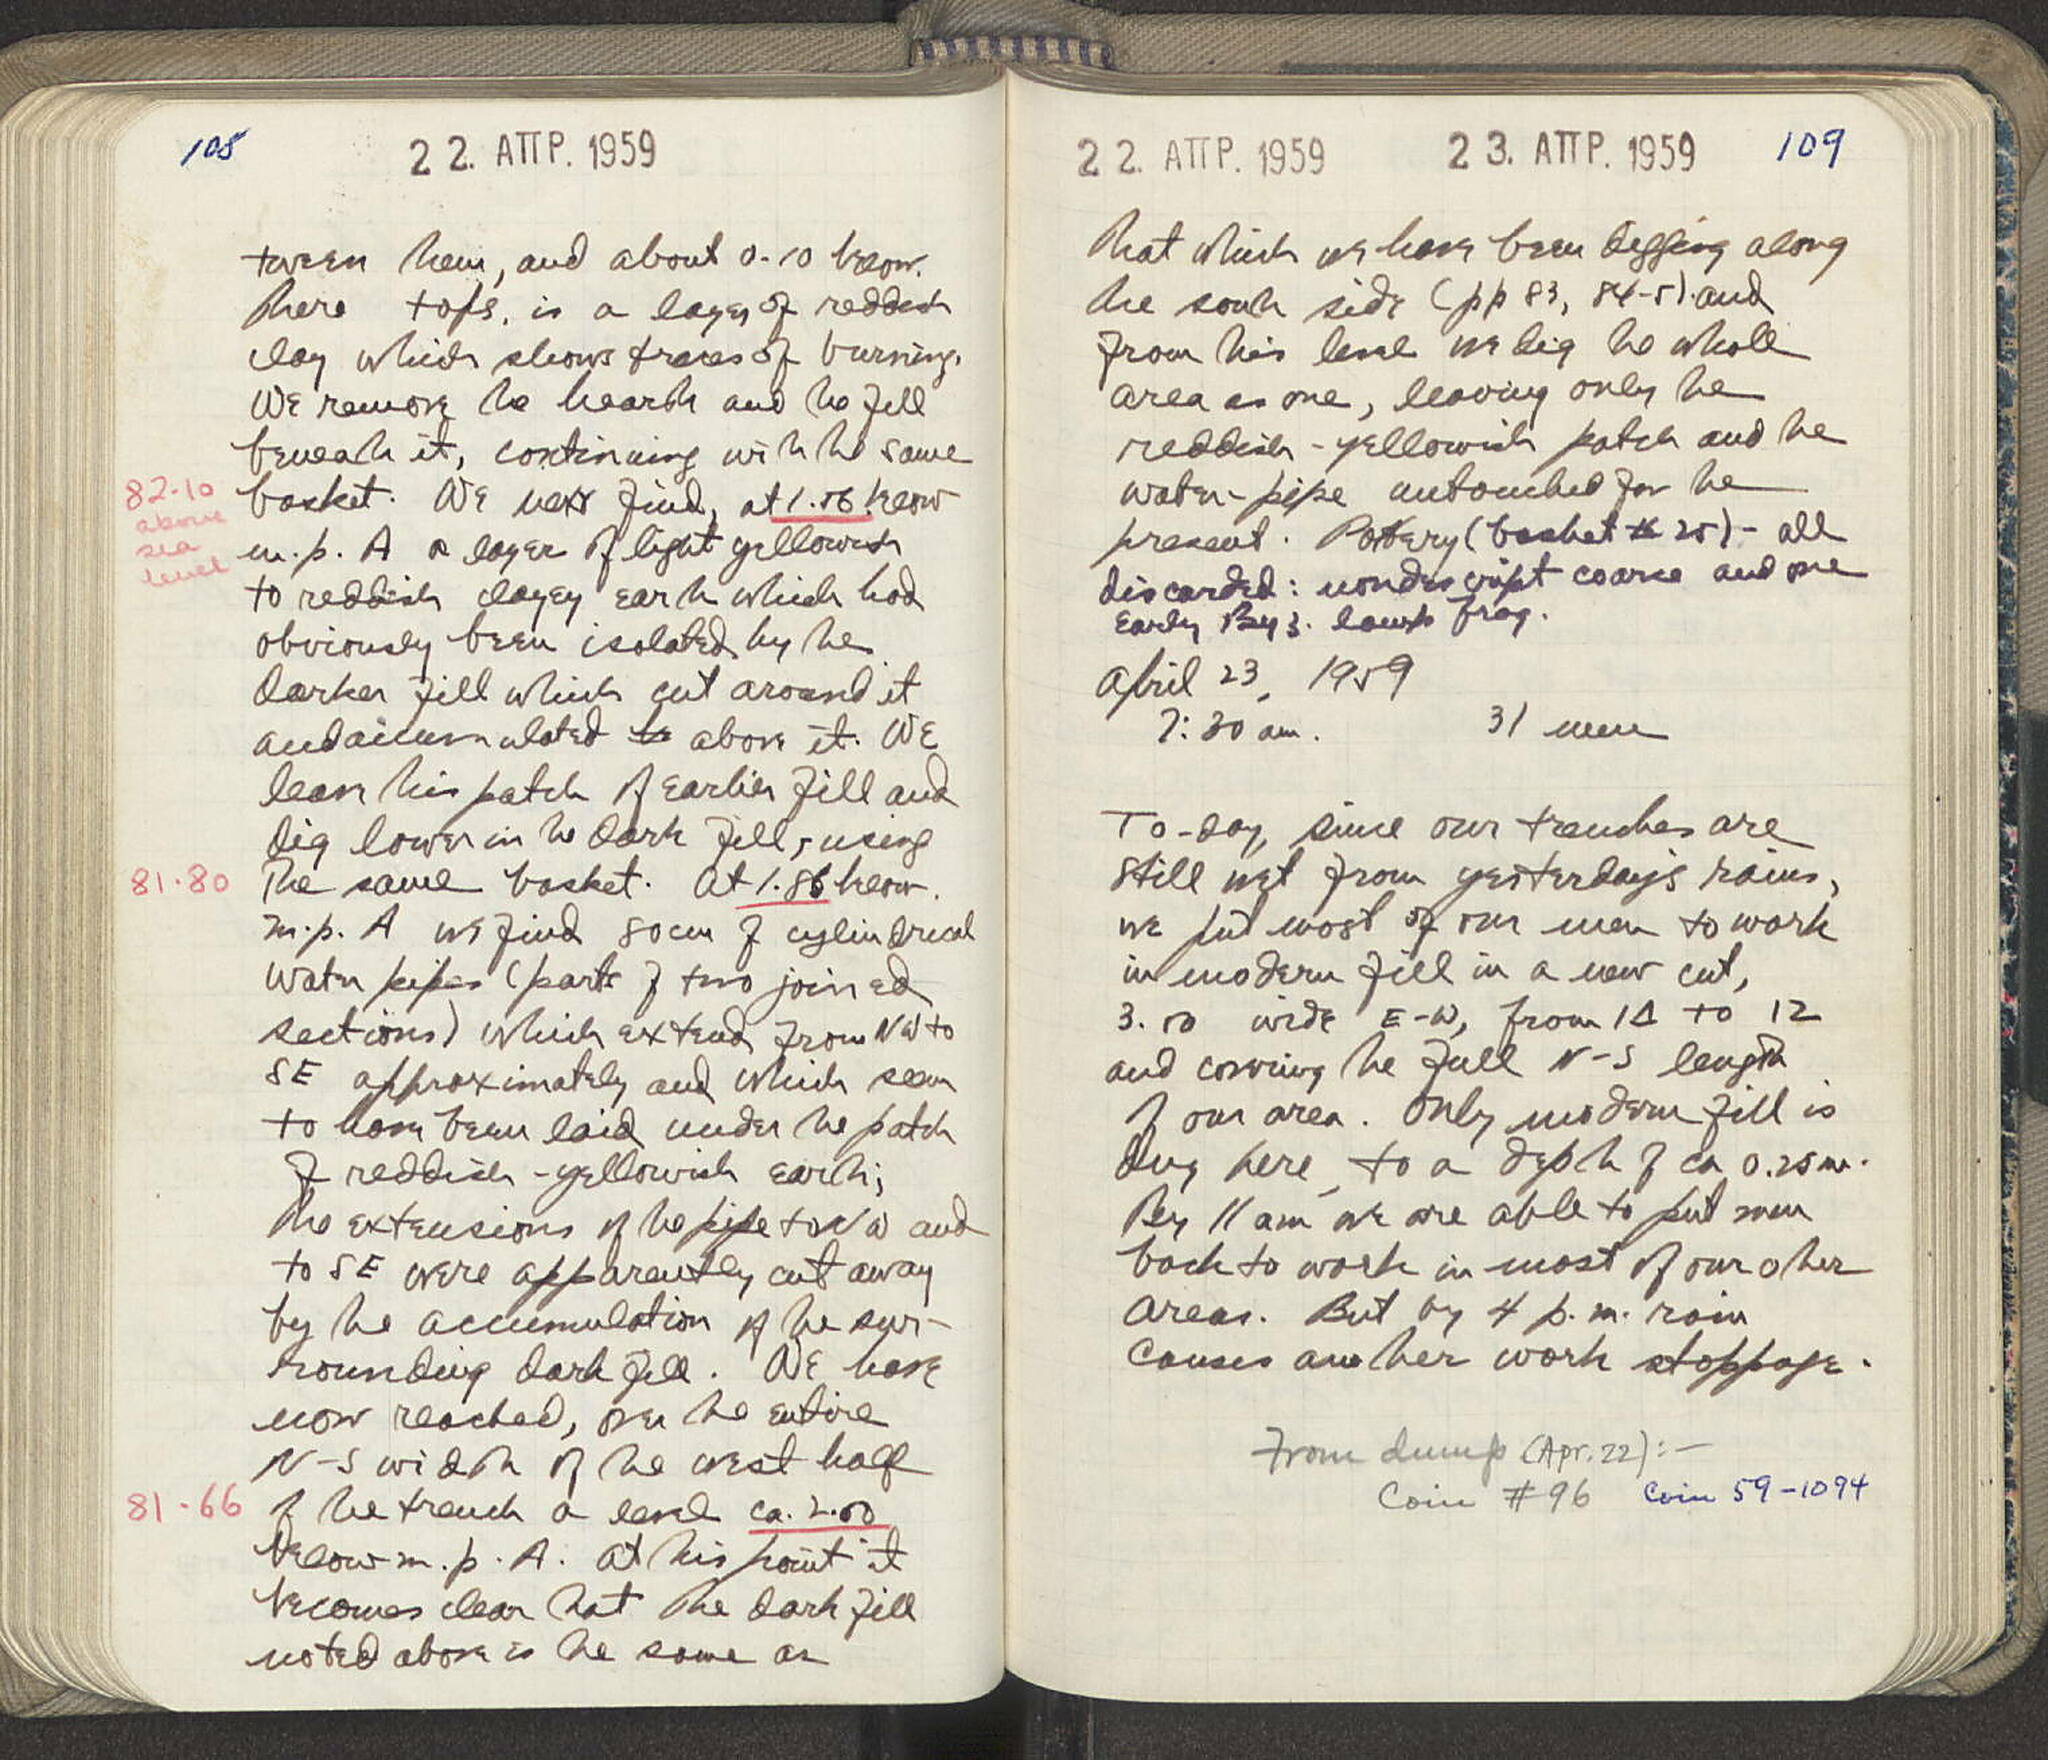 108
22. ΑΠΡ. 1959
tween them, and about 0.10 below
there tops, is a layer of reddish
clay which shows traces of burning.
We remove the hearth and the fill
beneath it, continuing with the same
82.10
above
sea
level
basket. We next find, at 1.56 below
m.p. A a layer of light yellowish
to reddish clayey earth which had
obviously been isolated by the
darker fill which cut around it
and accumulated above it. We
leave this patch of earlier fill and
dig lower in the dark fill, using
81.80
the same basket. At 1.86 below
m.p. A we find 80cm of cylindrical
water pipes (parts of two joined
sections) which extend from NW to
SE approximately and which seem
to have been laid under the patch
of reddish-yellowish earth;
the extensions of the pipe to NW and
to SE were apparently cut away
by the accumulation of the sur-
rounding dark fill. We have
now reached, over the entire
N-S width of the west half
81.66
of the trench a level ca. 2.00
below m.p. A. At this point it
becomes clear that the dark fill
noted above is the same as
22. ΑΠΡ. 1959
23. ΑΠΡ. 1959
109
that which we have been digging along
the south side (pp 83, 84-5) and
from this level we dig the whole
area as one, leaving only the
reddish-yellowish patch and the
water-pipe untouched for the
present. Pottery (basket # 25) - all
discarded: nondescript coarse and one
Early Byz. lamp frag.
April 23, 1959
7:30 am. 31 men
To-day, since our trenches are
still wet from yesterday's rains,
we put most of our men to work
in modern fill in a new cut,
3.00 wide E-W, from 1Δ to 12
and covering the full N-S length
of our area. Only modern fill is
dug here, to a depth of ca 0.25m.
By 11 am we are able to put men
back to work in most of our other
areas. But by 4 p.m. rain
causes another work stoppage.
From dump (Apr. 22):-
Coin #96 Coin 59-1094